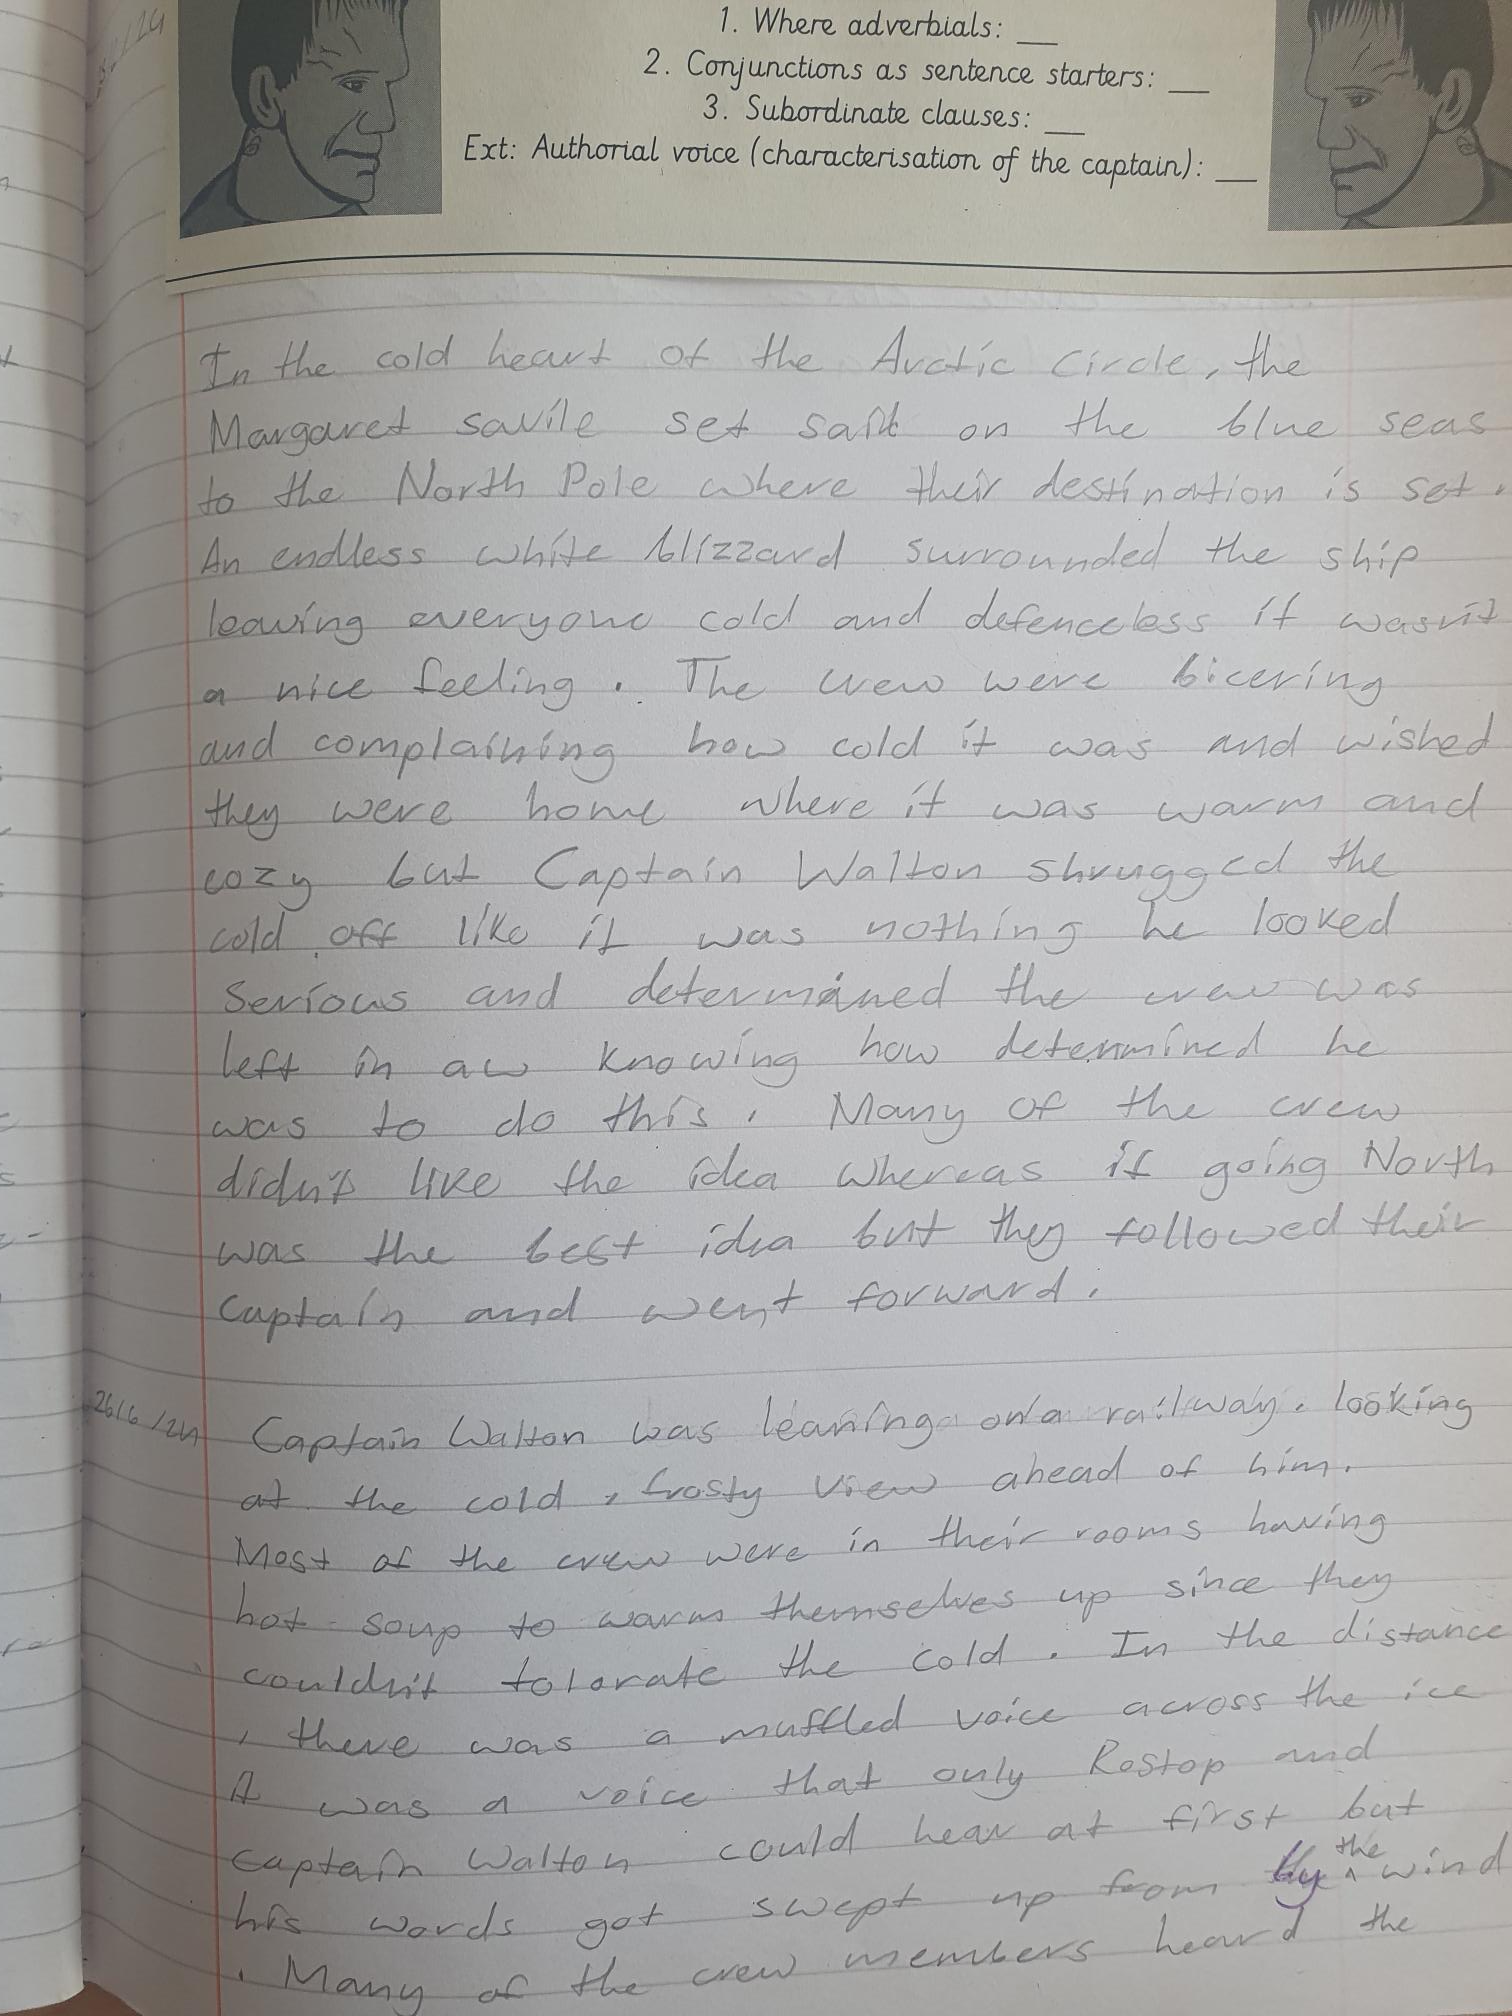 1. Where adverbials: __
2. Conjunctions as sentence starters: __
3. Subordinate clauses: __
Ext: Authorial voice (characterisation of the captain): __
In the cold heart of the Arctic Circle, the
Margaret savile set sail on the blue seas
to the North Pole where their destination is set.
An endless white blizzard surrounded the ship
leaving everyone cold and defenceless it wasn't
a nice feeling. The crew were bicering
and complaining how cold it was and wished
they were home where it was warm and
cozy but Captain Walton shrugged the
cold off like it was nothing he looked
serious and determined the crew was
left in aw knowing how determined he
was to do this. Many of the crew
didn't like the idea whereas if going North
was the best idea but they followed their
captain and went forward.
26/6/24 Captain Walton was leaning on a railway. looking
at the cold, frosty view ahead of him.
Most of the crew were in their rooms having
hot soup to warm themselves up since they
couldn't tolarate the cold. In the distance
, there was a muffled voice across the ice
It was a voice that only Rostop and
captain Walton could hear at first but
his words got swept up from by the wind
. Many of the crew members heard the